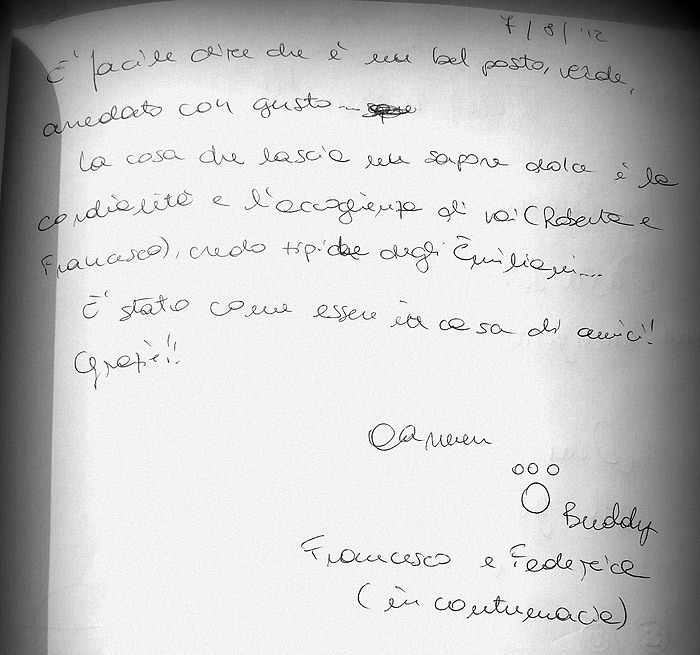 7/8/'12
E' facile dire che è un bel posto, verde,
arredato con gusto...
La cosa che lascia un sapore dolce è la
cordialità e l'accoglienza di voi (Roberta e
Francesco), credo tipiche degli Emiliani...
E' stato come essere in casa di amici!!
Grazie!!
Carmen
Buddy
Francesco e Federica
(in contumacia)